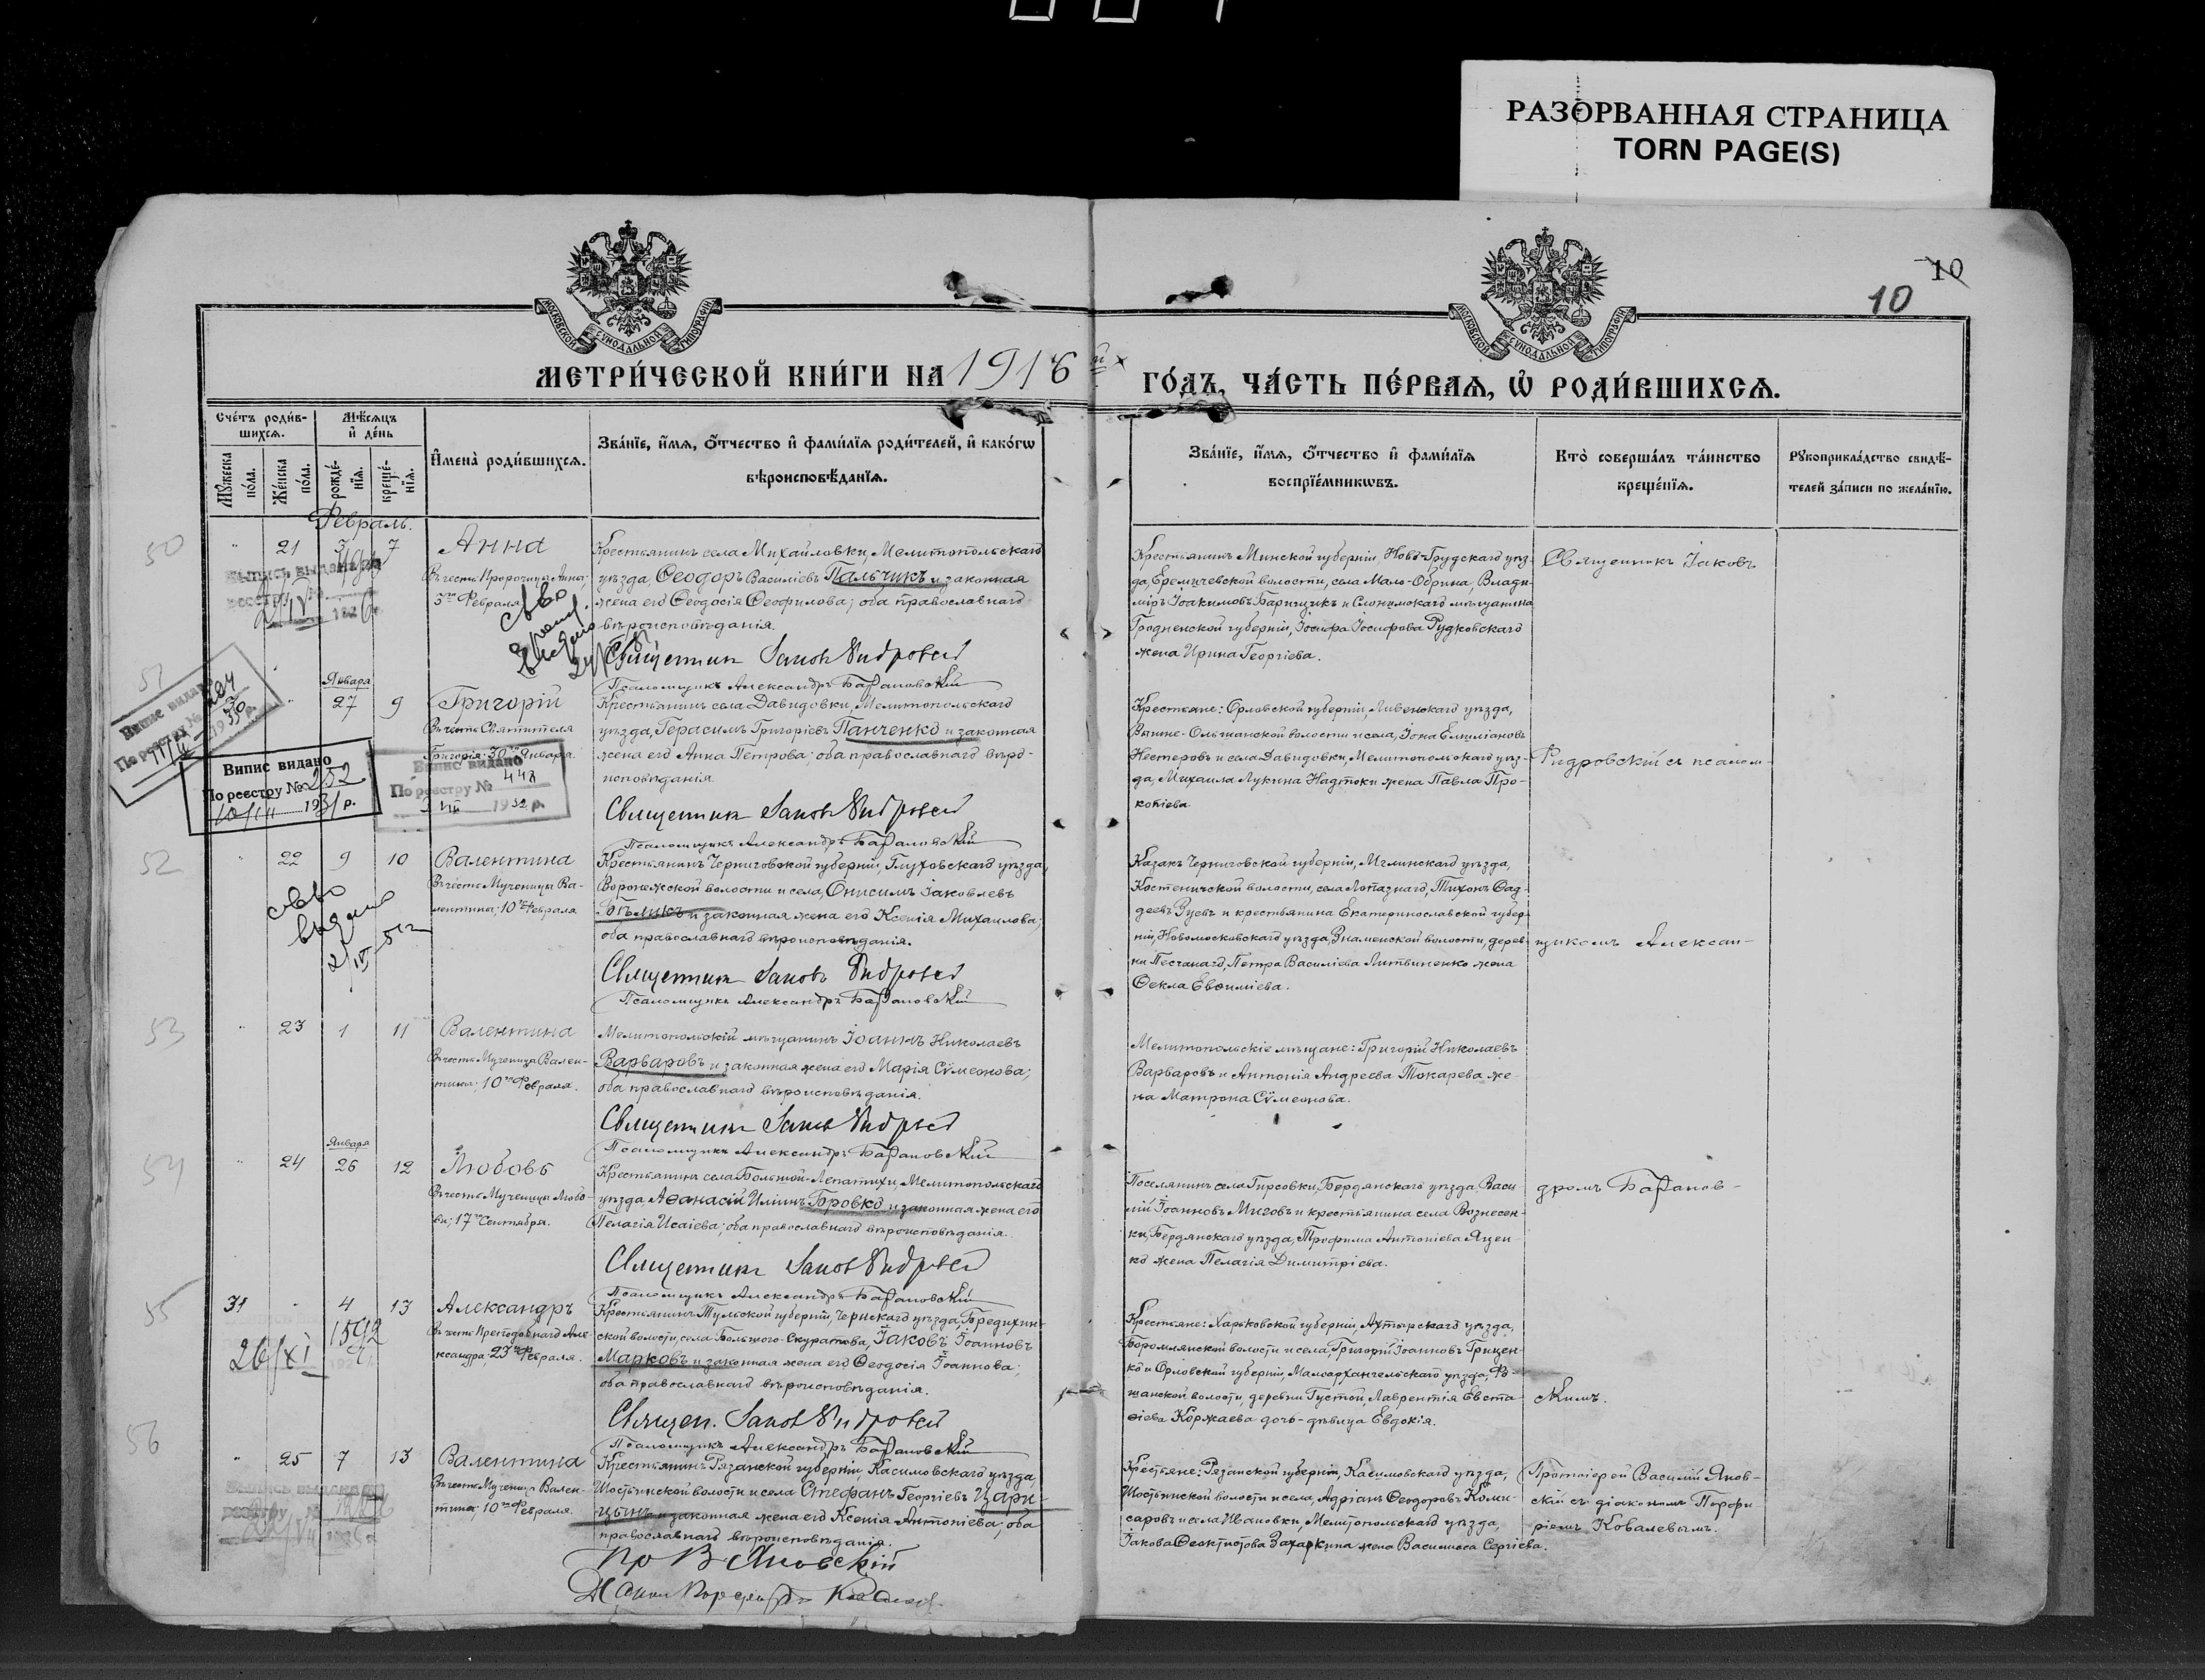 РАЗОРВАННАЯ СТРАНИЦА
TORN PAGE(S)
10
10
МОСКОВСКОЙ СѴНОДАЛЬНОЙ ТИПОГРАФІИ
МОСКОВСКОЙ СѴНОДАЛЬНОЙ ТИПОГРАФІИ
МЕТРИ́ЧЕСКОЙ КНИ́ГИ НА 1916 й ГО́ДЪ, ЧА́СТЬ ПЕ́РВАѦ, Ѡ҆ РОДИ́ВШИХСѦ.
Сче́тъ роди́в-
шихсѧ.
Мѣ́сѧцъ
и҆ де́нь
Мꙋ́жеска по́ла.
Же́нска по́ла.
рожде́-нїѧ.
креще́-нїѧ.
И҆мена̀ роди́вшихсѧ.
Зва́нїе, и҆́мѧ, ѻ҆́тчество и҆ фами́лїѧ роди́телей, и҆ како́гѡ
вѣроисповѣ́данїѧ.
Зва́нїе, и҆́мѧ, ѻ҆́тчество и҆ фами́лїѧ
воспрїе́мникѡвъ.
Кто̀ соверша́лъ та́инство
креще́нїѧ.
Рꙋкоприкла́дство свидѣ́-
телей за́писи по жела́нїю.
Февраль.
50
21 3 7
Анна
Въ честь Пророчицы Анны;
3го Февраля
Крестьянинъ села Михайловки, Мелитопольскаго
уѣзда, Ѳеодоръ Василіевъ Пальчикъ и законная
жена его Ѳеодосія Ѳеофилова; оба православнаго
вѣроисповѣданія.
Священник Іаков Фидровский
Псаломщикъ Александръ Барановскій
Крестьянинъ Минской губерніи, Ново-Грудскаго уѣз-
да, Еремичевской волости, села Мало-Обрина, Влади-
міръ Іоакимовъ Барищикъ и Слонимскаго мѣщанина
Гродненской губерніи, Іосифа Іосифова Рудковскаго
жена Ирина Георгіева.
Священникъ Іаковъ
51
Января
27 9
Григорій
Въ честь Святителя
Григорія; 30го Января.
Крестьянинъ села Давидовки, Мелитопольскаго
уѣзда, Герасимъ Григоріевъ Панченко и законная
жена его Анна Петрова; оба православнаго вѣро-
исповѣданія
Священник Іаков Фидровский
Псаломщикъ Александръ Барановскій
Крестьяне: Орловской губерніи, Ливенскаго уѣзда,
Вышне-Ольшанской волости и села, Іона Емиліановъ
Нестеровъ и села Давидовки, Мелитопольскаго уѣз-
да, Михаила Лукина Надтоки жена Павла Про-
копіева.
Фидровскій съ псалом-
Випис видано
По реєстру № 284
Випис видано
По реєстру № 252
10/III 1931 р.
Випис видано
По реєстру № 448
1932 р.
52
22 9 10
Валентина
Въ честь Мученицы Ва-
лентины; 10го Февраля
Крестьянинъ Черниговской губерніи, Глуховскаго уѣзда,
Воронежской волости и села, Онисимъ Іаковлевъ
Бѣликъ и законная жена его Ксенія Михаилова;
оба православнаго вѣроисповѣданія.
Священник Іаковъ Фидровский
Псаломщикъ Александръ Барановскій
Казакъ Черниговской губерніи, Мглинскаго уѣзда,
Костеничской волости, села Лопазнаго, Тихонъ Ѳад-
деевъ Зуевъ и крестьянина Екатеринославской губер-
ніи, Новомосковскаго уѣзда, Знаменской волости, дерев-
ни Песчанаго, Петра Василіева Литвиненко жена
Ѳекла Евѳиміева.
щикомъ Алексан-
53
23 1 11
Валентина
Въ честь Мученицы Вален-
тины; 10го Февраля.
Мелитопольскій мѣщанинъ Іоаннъ Николаевъ
Варваровъ и законная жена его Марія Сѵмеонова;
оба православнаго вѣроисповѣданія.
Священник Іаков Фидровский
Псаломщикъ Александръ Барановскій
Мелитопольскіе мѣщане: Григорій Николаевъ
Варваровъ и Антонія Андреева Токарева же-
на Матрона Сѵмеонова.
54
Января
24 26 12
Любовь
Въ честь Мученицы Любо-
ви; 17го Сентября.
Крестьянинъ села Большой-Лепатихи, Мелитопольскаго
уѣзда, Аѳанасій Иліинъ Бровко и законная жена его
Пелагія Исаіева; оба православнаго вѣроисповѣданія.
Священник Іаков Фидровский
Псаломщикъ Александръ Барановскій
Поселянинъ села Гирсовки, Бердянскаго уѣзда, Васи-
лій Іоанновъ Миговъ и крестьянина села Вознесен-
ки, Бердянскаго уѣзда, Трофима Антоніева Яцен-
ко жена Пелагія Димитріева.
дромъ Баранов-
55
31 4 13
Александръ
Въ честь Преподобнаго Але-
ксандра; 23го Февраля.
1592
26/XI
Крестьянинъ Тульской губерніи, Чернскаго уѣзда, Бредихин-
ской волости, села Большого-Скуратова, Іаковъ Іоанновъ
Марковъ и законная жена его Ѳеодосія Іоаннова;
оба православнаго вѣроисповѣданія.
Священ. Іаков Фидровский
Псаломщикъ Александръ Барановскій
Крестьяне: Харьковской губерніи, Ахтырскаго уѣзда,
Боромлянской волости и села, Григорій Іоанновъ Грицен-
ко и Орловской губерніи, Малоархангельскаго уѣзда, Фо-
шанской волости, деревни Густой, Лаврентія Евста-
ѳіева Коржаева дочь-дѣвица Евдокія.
скимъ.
56
25 7 13
Валентина
Въ честь Мученицы Вален-
тины; 10го Февраля.
Крестьянинъ Рязанской губерніи, Касимовскаго уѣзда,
Шостьинской волости и села Стефанъ Георгіевъ Цари-
цынъ и законная жена его Ксенія Антоніева; оба
православнаго вѣроисповѣданія.
Пр В Яновскій
Крестьяне: Рязанской губерніи, Касимовскаго уѣзда,
Шостьинской волости и села, Адріанъ Ѳеодоровъ Коми-
саровъ и села Ивановки, Мелитопольскаго уѣзда,
Іакова Ѳеоктистова Захаркина жена Василисса Сергіева.
Протоіерей Василій Янов-
скій съ діакономъ Порфи-
ріемъ Ковалевымъ.